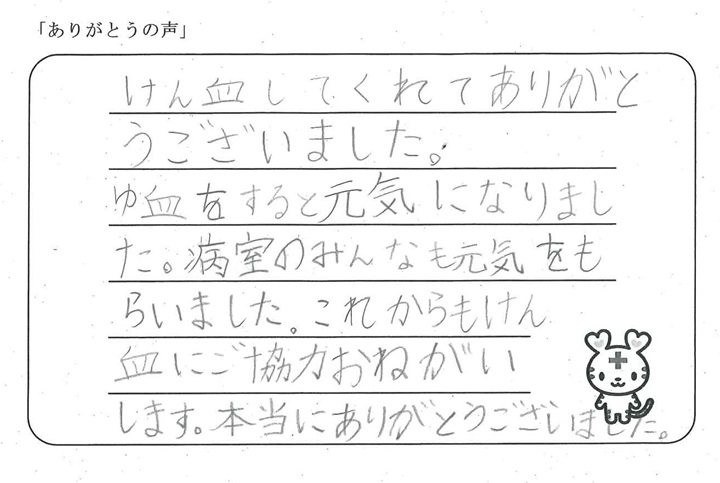 「ありがとうの声」
けん血してくれてありがと
うございました。
ゆ血をすると元気になりまし
た。病室のみんなも元気をも
らいました。これからもけん
血にご協力おねがい
します。本当にありがとうございました。